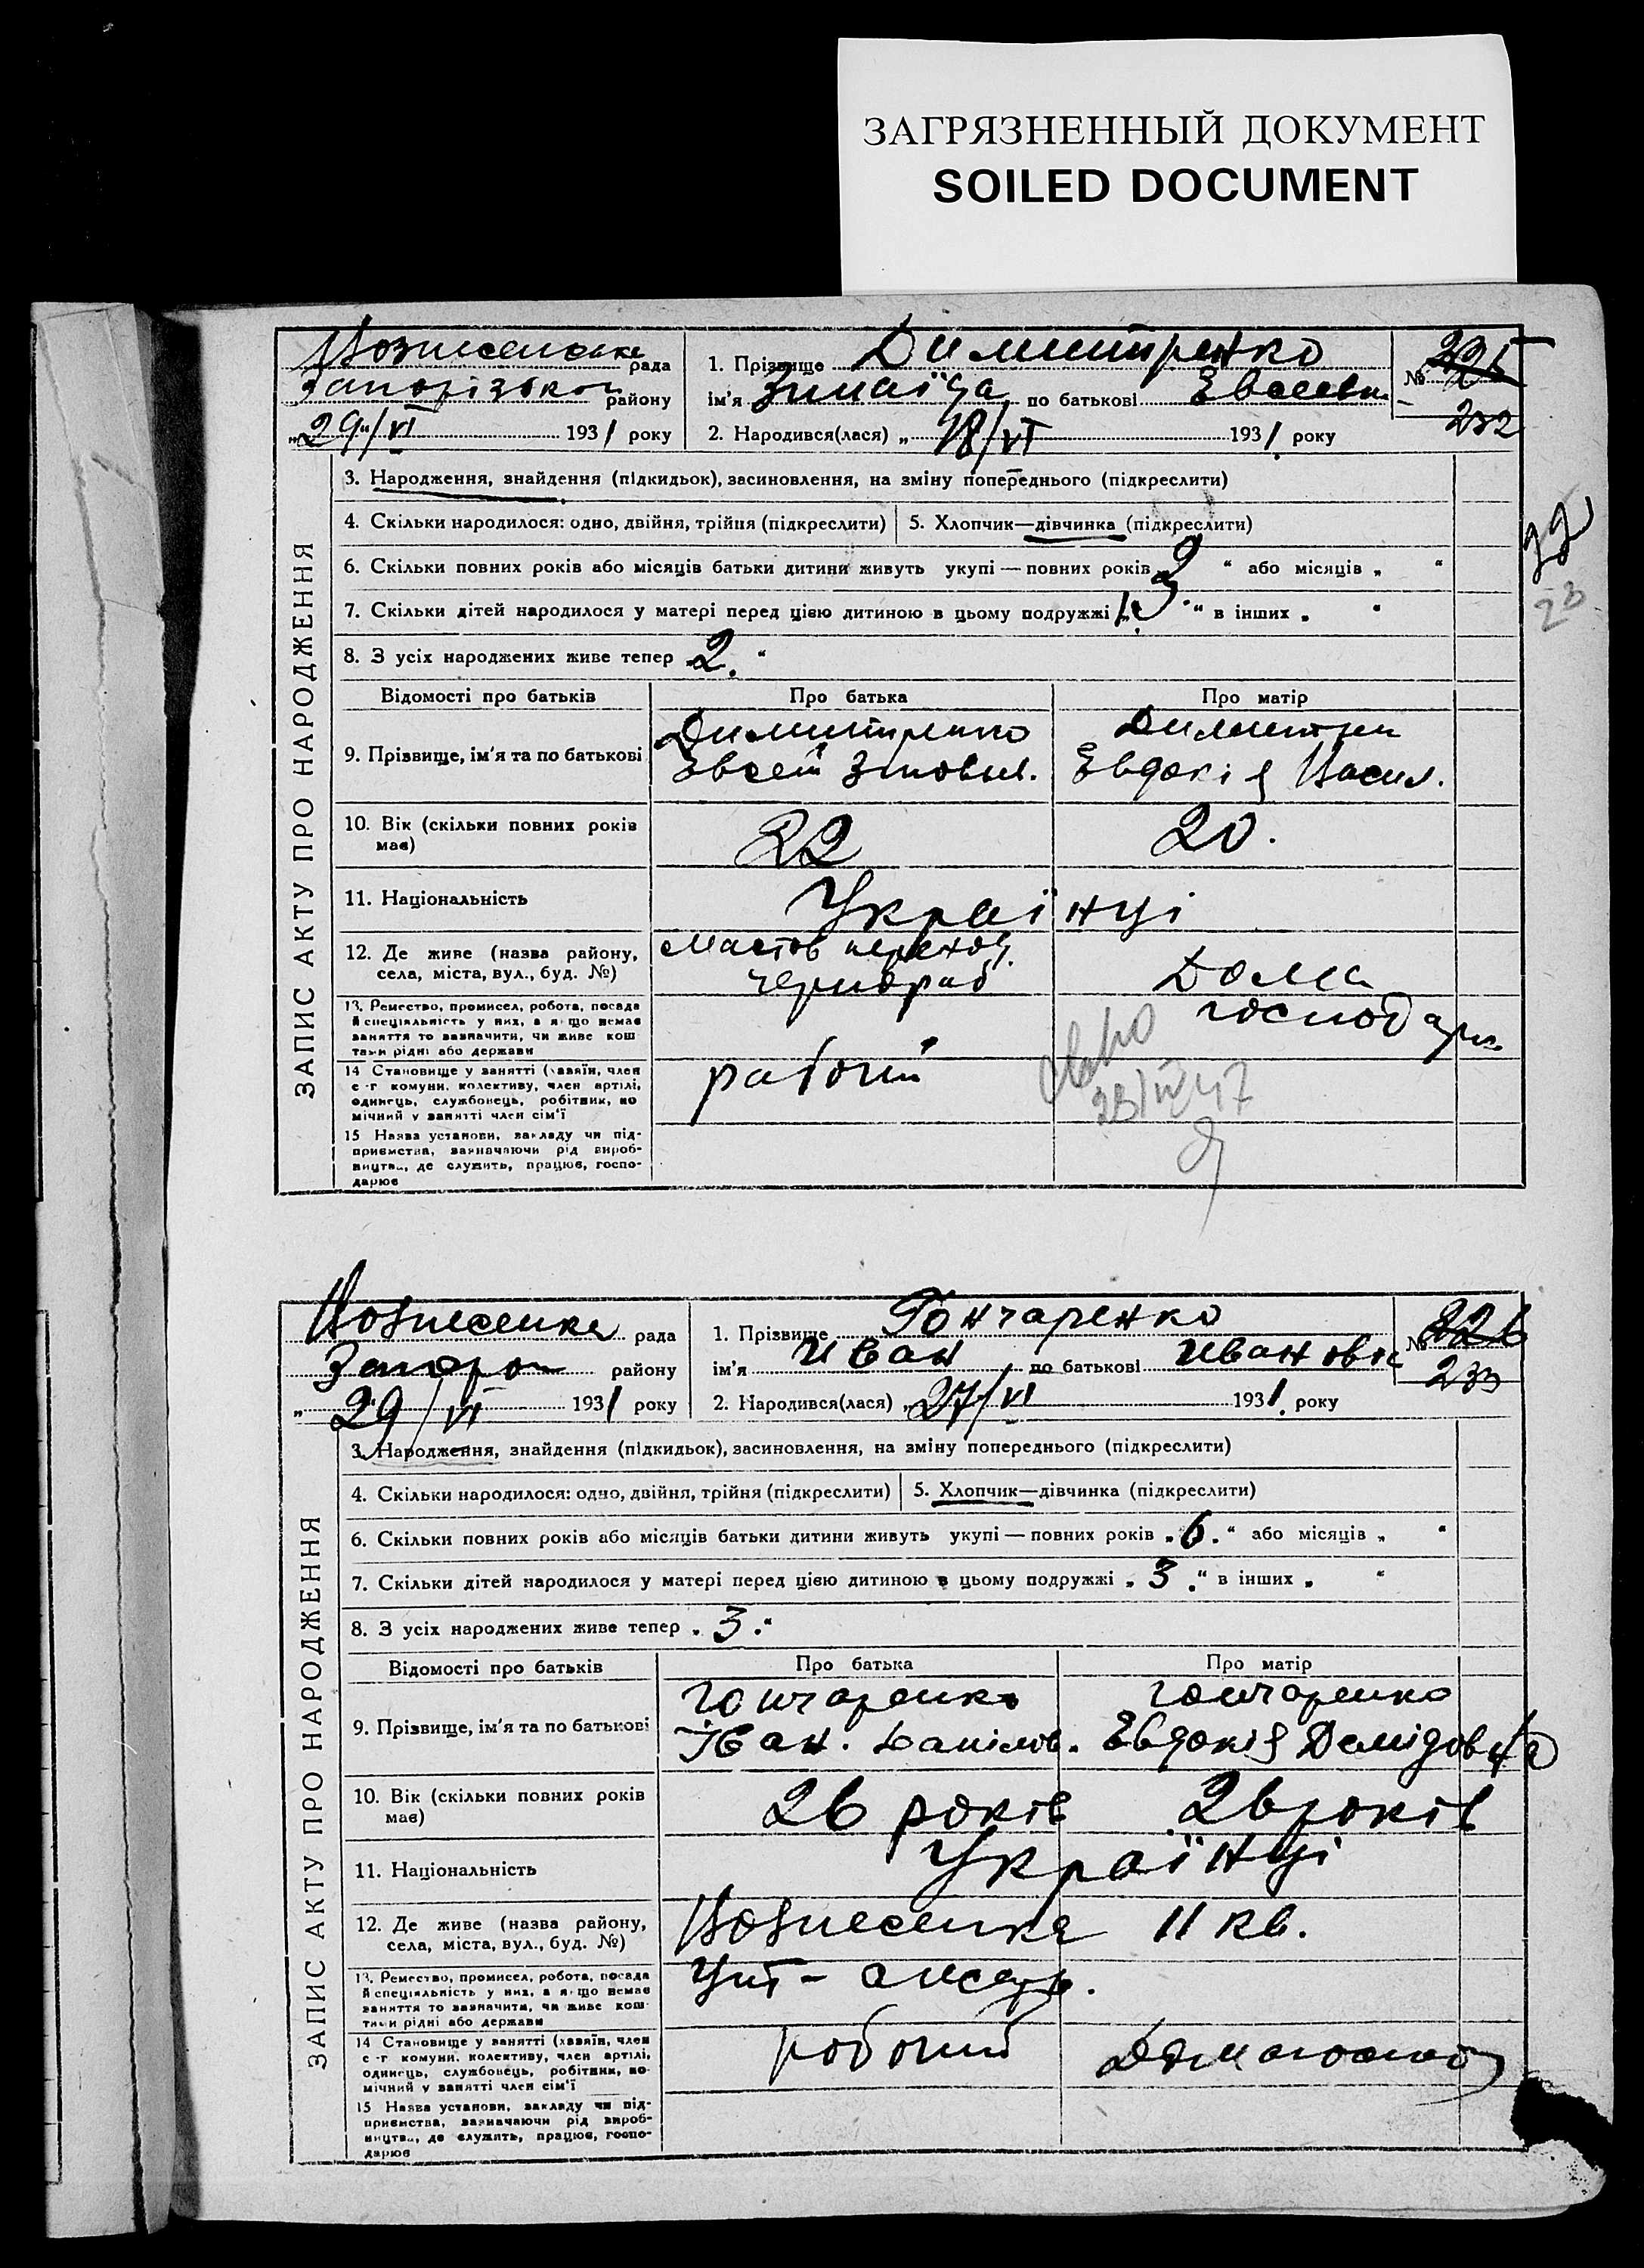 ЗАГРЯЗНЕННЫЙ ДОКУМЕНТ
SOILED DOCUMENT
рада
району
„29“/VI 1931 року
1. Прізвище Димитренко
ім'я Зинаїда по батькові
2. Народився(лася) „18/VI 1931. року
№
232
ЗАПИС АКТУ ПРО НАРОДЖЕННЯ
3. Народження, знайдення (підкидьок), засиновлення, на зміну попереднього (підкреслити)
4. Скільки народилося: одно, двійня, трійня (підкреслити)
5. Хлопчик—дівчинка (підкреслити)
6. Скільки повних років або місяців батьки дитини живуть укупі — повних років 3 “ або місяців „ “
7. Скільки дітей народилося у матері перед цією дитиною в цьому подружжі “ в інших „ “
8. З усіх народжених живе тепер 2.“
Відомості про батьків
Про батька
Про матір
9. Прізвище, ім'я та по батькові
Евсей
Евдокія Васил.
10. Вік (скільки повних років має)
22
20.
11. Національність
Українці
12. Де живе (назва району, села, міста, вул., буд. №)
чернораб
Дома
13. Ремество, промисел, робота, посада й спеціяльність у них, а якщо немає заняття то зазначити, чи живе коштами рідні або держави
господар.
14 Становище у занятті (хазяїн, член с-г комуни, колективу, член артілі, одинець, службовець, робітник, помічний у занятті член сім'ї
рабочий
15 Назва установи, закладу чи підприємства, зазначаючи рід виробництва, де служить, працює, господарює
23
Вознесенка рада
району
„29/VI 1931 року
1. Прізвище Гончаренко
ім'я Иван по батькові
2. Народився(лася) „27/VI 1931. року
№ 226
233
ЗАПИС АКТУ ПРО НАРОДЖЕННЯ
3. Народження, знайдення (підкидьок), засиновлення, на зміну попереднього (підкреслити)
4. Скільки народилося: одно, двійня, трійня (підкреслити)
5. Хлопчик—дівчинка (підкреслити)
6. Скільки повних років або місяців батьки дитини живуть укупі — повних років „6.“ або місяців „ “
7. Скільки дітей народилося у матері перед цією дитиною в цьому подружжі „3.“ в інших „ “
8. З усіх народжених живе тепер „3.“
Відомості про батьків
Про батька
Про матір
9. Прізвище, ім'я та по батькові
Гончаренко
Іван. Данілов.
Гончаренко
Евдокія Демідовна
10. Вік (скільки повних років має)
26 років
26 років
11. Національність
Українці
12. Де живе (назва району, села, міста, вул., буд. №)
Вознесенка 11 кв.
13. Ремество, промисел, робота, посада й спеціяльність у них, а якщо немає заняття то зазначити, чи живе коштами рідні або держави
14 Становище у занятті (хазяїн, член с-г комуни, колективу, член артілі, одинець, службовець, робітник, помічний у занятті член сім'ї
робочий
15 Назва установи, закладу чи підприємства, зазначаючи рід виробництва, де служить, працює, господарює